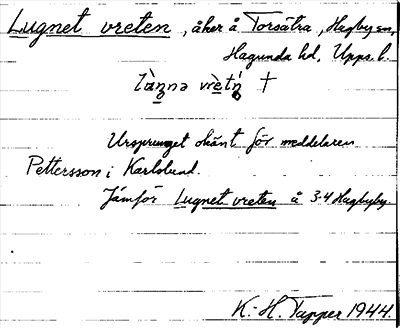 Lugnet vreten, åker å Torsätra, Hagby sn,
Hagunda hd, Upps. l.
vrètn̥ †
Ursprunget okänt för meddelaren
Pettersson i Karlslund.
Jämför Lugnet vreten å 3-4 Hagbyby.
K.-H. Tapper 1944.